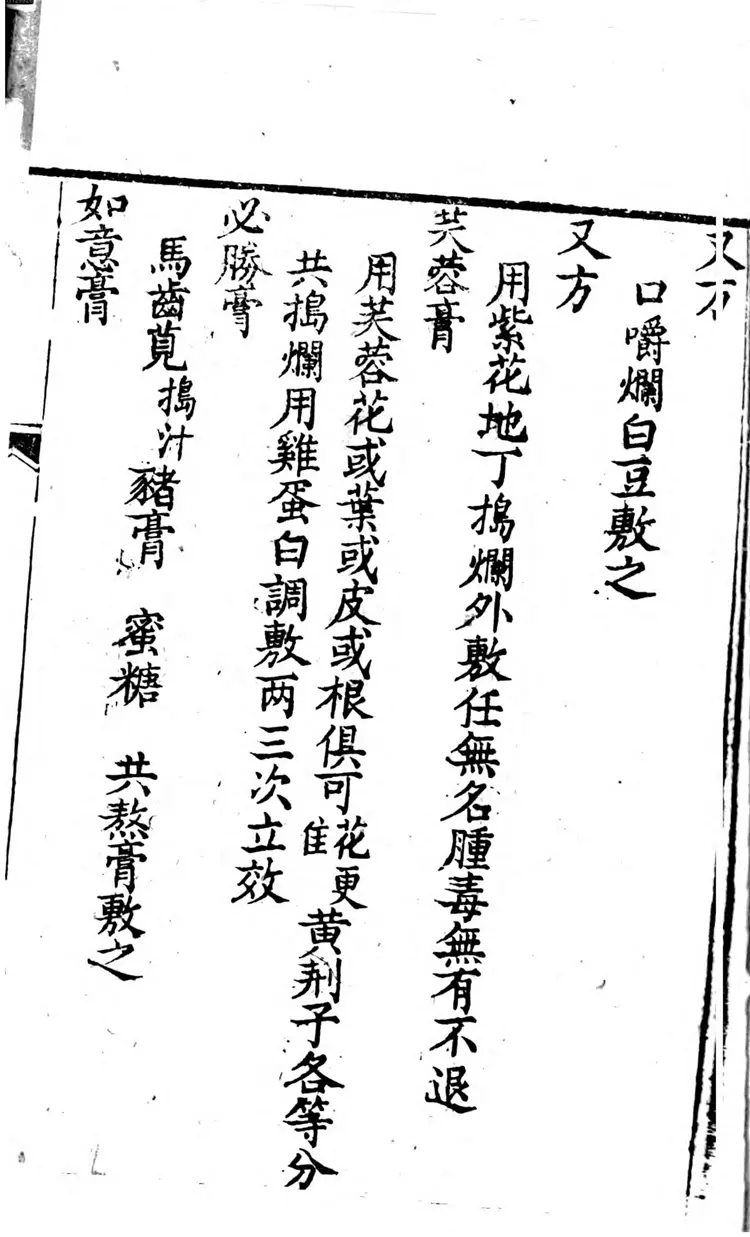 又方
口嚼爛白豆敷之
又方
用紫花地丁搗爛外敷任無名腫毒無有不退
芙蓉膏
用芙蓉花或葉或皮或根俱可花更佳黄荆子各等分
共搗爛用雞蛋白調敷两三次立效
必勝膏
馬齒莧搗汁豬膏 蜜糖 共熬膏敷之
如意膏